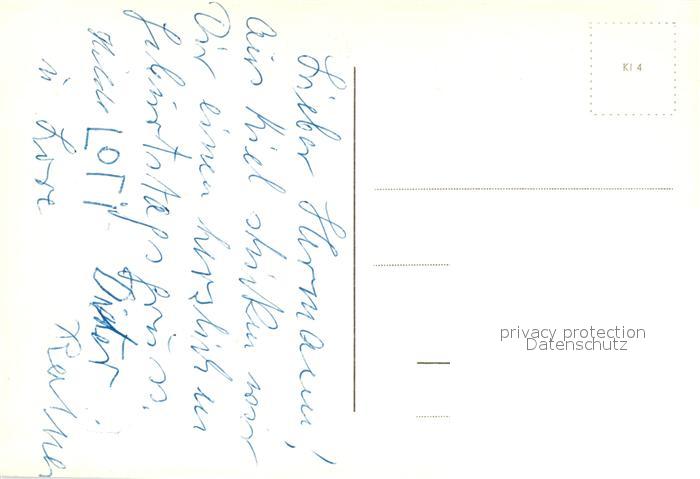 Lieber Hermann!
Aus Kiel schicken wir
Dir einen herzlichen
Geburtstagsgruss.
Hilde LOrI Dieter
u Lore Rei
KI 4
privacy protection
Datenschutz